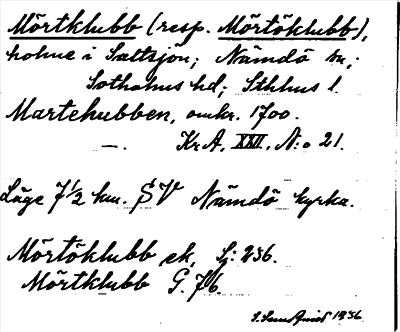 Mörtklubb (resp. Mörtöklubb),
holme i Saltsjön; Nämdö sn,;
Sotholms hd; Sthlms l.
Martehubben, omkr. 1700.
—. Kr A, XXII, N:o 21.
Läge 7 1/2 km. SV Nämdö kyrka.
Mörtöklubb ek, Sj: 236.
Mörtklubb G. 76
1936